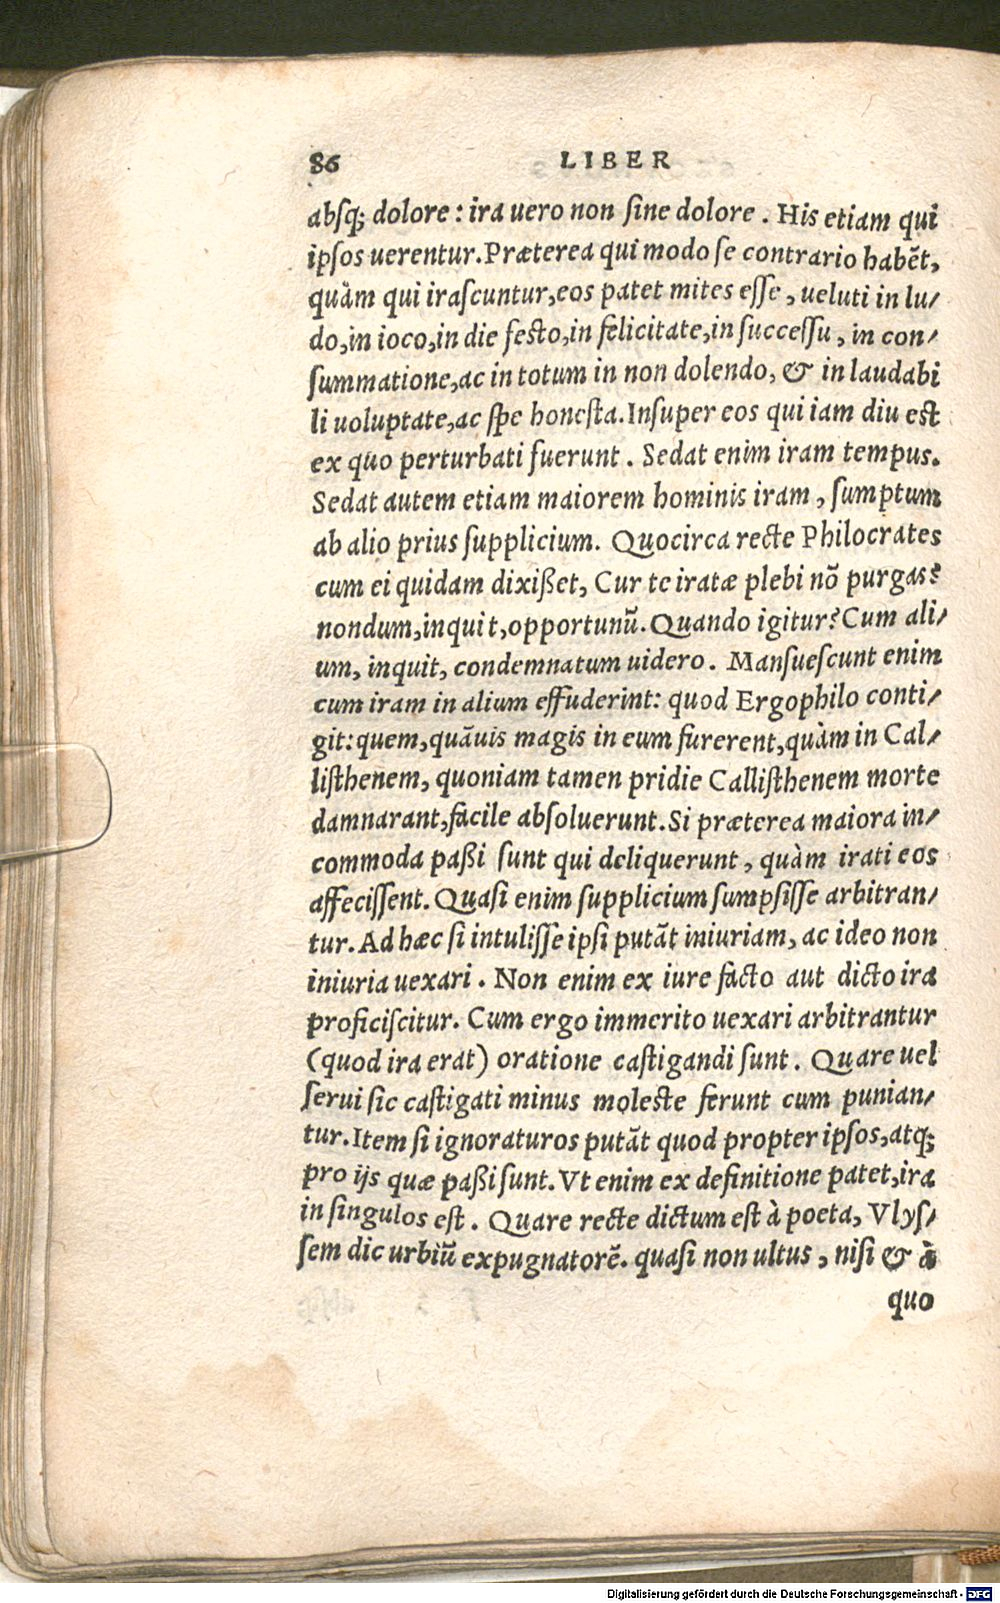 86 LIBER
absq; dolore: ira uero non sine dolore. His etiam qui
ipsos uerentur. Præterea qui modo se contrario habẽt,
quàm qui irascuntur, eos patet mites esse, ueluti in lu/
do, in ioco, in die festo, in felicitate, in successu, in con/
summatione, ac in totum in non dolendo, & in laudabi
li uoluptate, ac spe honesta. Insuper eos qui iam diu est
ex quo perturbati fuerunt. Sedat enim iram tempus.
Sedat autem etiam maiorem hominis iram, sumptum
ab alio prius supplicium. Quocirca recte Philocrates
cum ei quidam dixißet, Cur te iratæ plebi nõ purgas?
nondum, inquit, opportunũ. Quando igitur? Cum ali/
um, inquit, condemnatum uidero. Mansuescunt enim
cum iram in alium effuderint: quod Ergophilo conti/
git: quem, quãuis magis in eum furerent, quàm in Cal/
listhenem, quoniam tamen pridie Callisthenem morte
damnarant, facile absoluerunt. Si præterea maiora in/
commoda paßi sunt qui deliquerunt, quàm irati eos
affecissent. Quasi enim supplicium sumpsisse arbitran/
tur. Ad hæc si intulisse ipsi putãt iniuriam, ac ideo non
iniuria uexari. Non enim ex iure facto aut dicto ira
proficiscitur. Cum ergo immerito uexari arbitrantur
(quod ira erat) oratione castigandi sunt. Quare uel
serui sic castigati minus moleste ferunt cum punian/
tur. Item si ignoraturos putãt quod propter ipsos, atq;
pro ijs quæ paßi sunt. Vt enim ex definitione patet, ira
in singulos est. Quare recte dictum est à poeta, Vlys/
sem dic urbiũ expugnatorẽ. quasi non ultus, nisi & à
quo
Digitalisierung gefördert durch die Deutsche Forschungsgemeinschaft - DFG